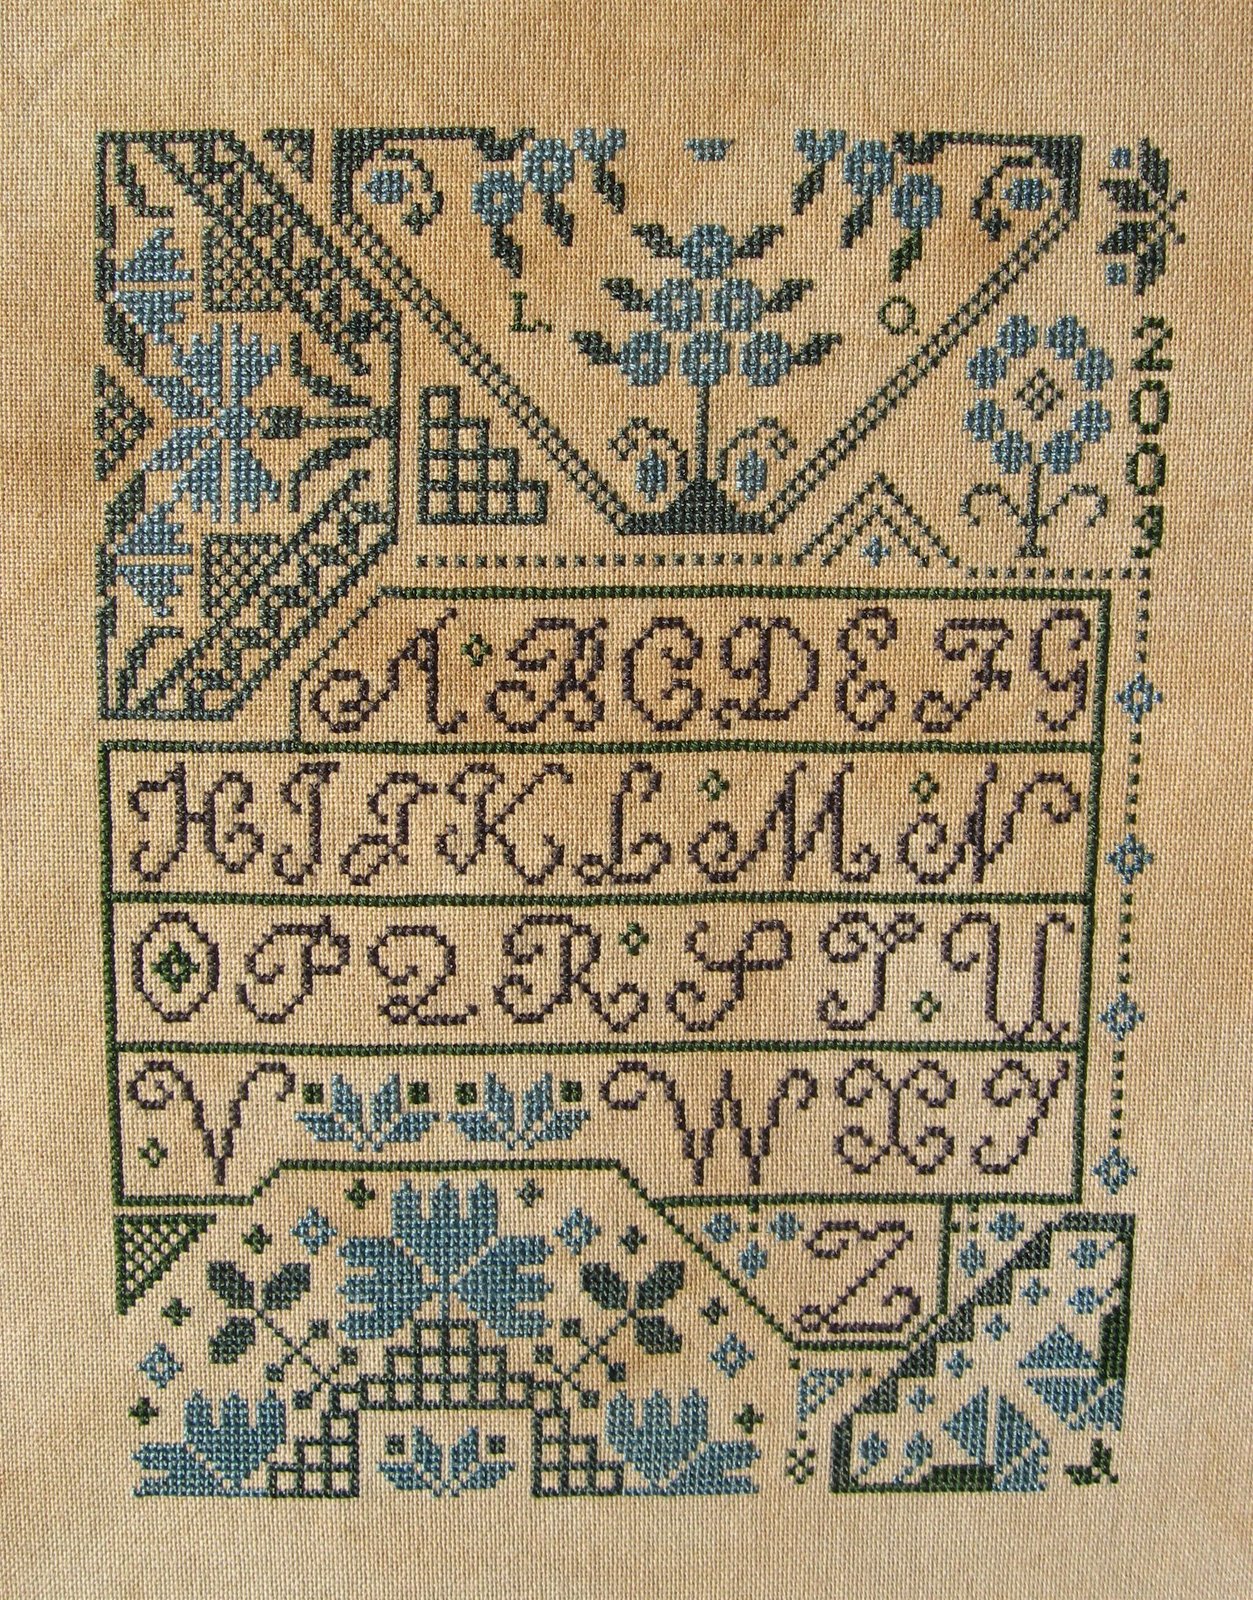 L O
2009
A B C D E F G
H I J K L M N
O P Q R S T U
V W X Y
Z